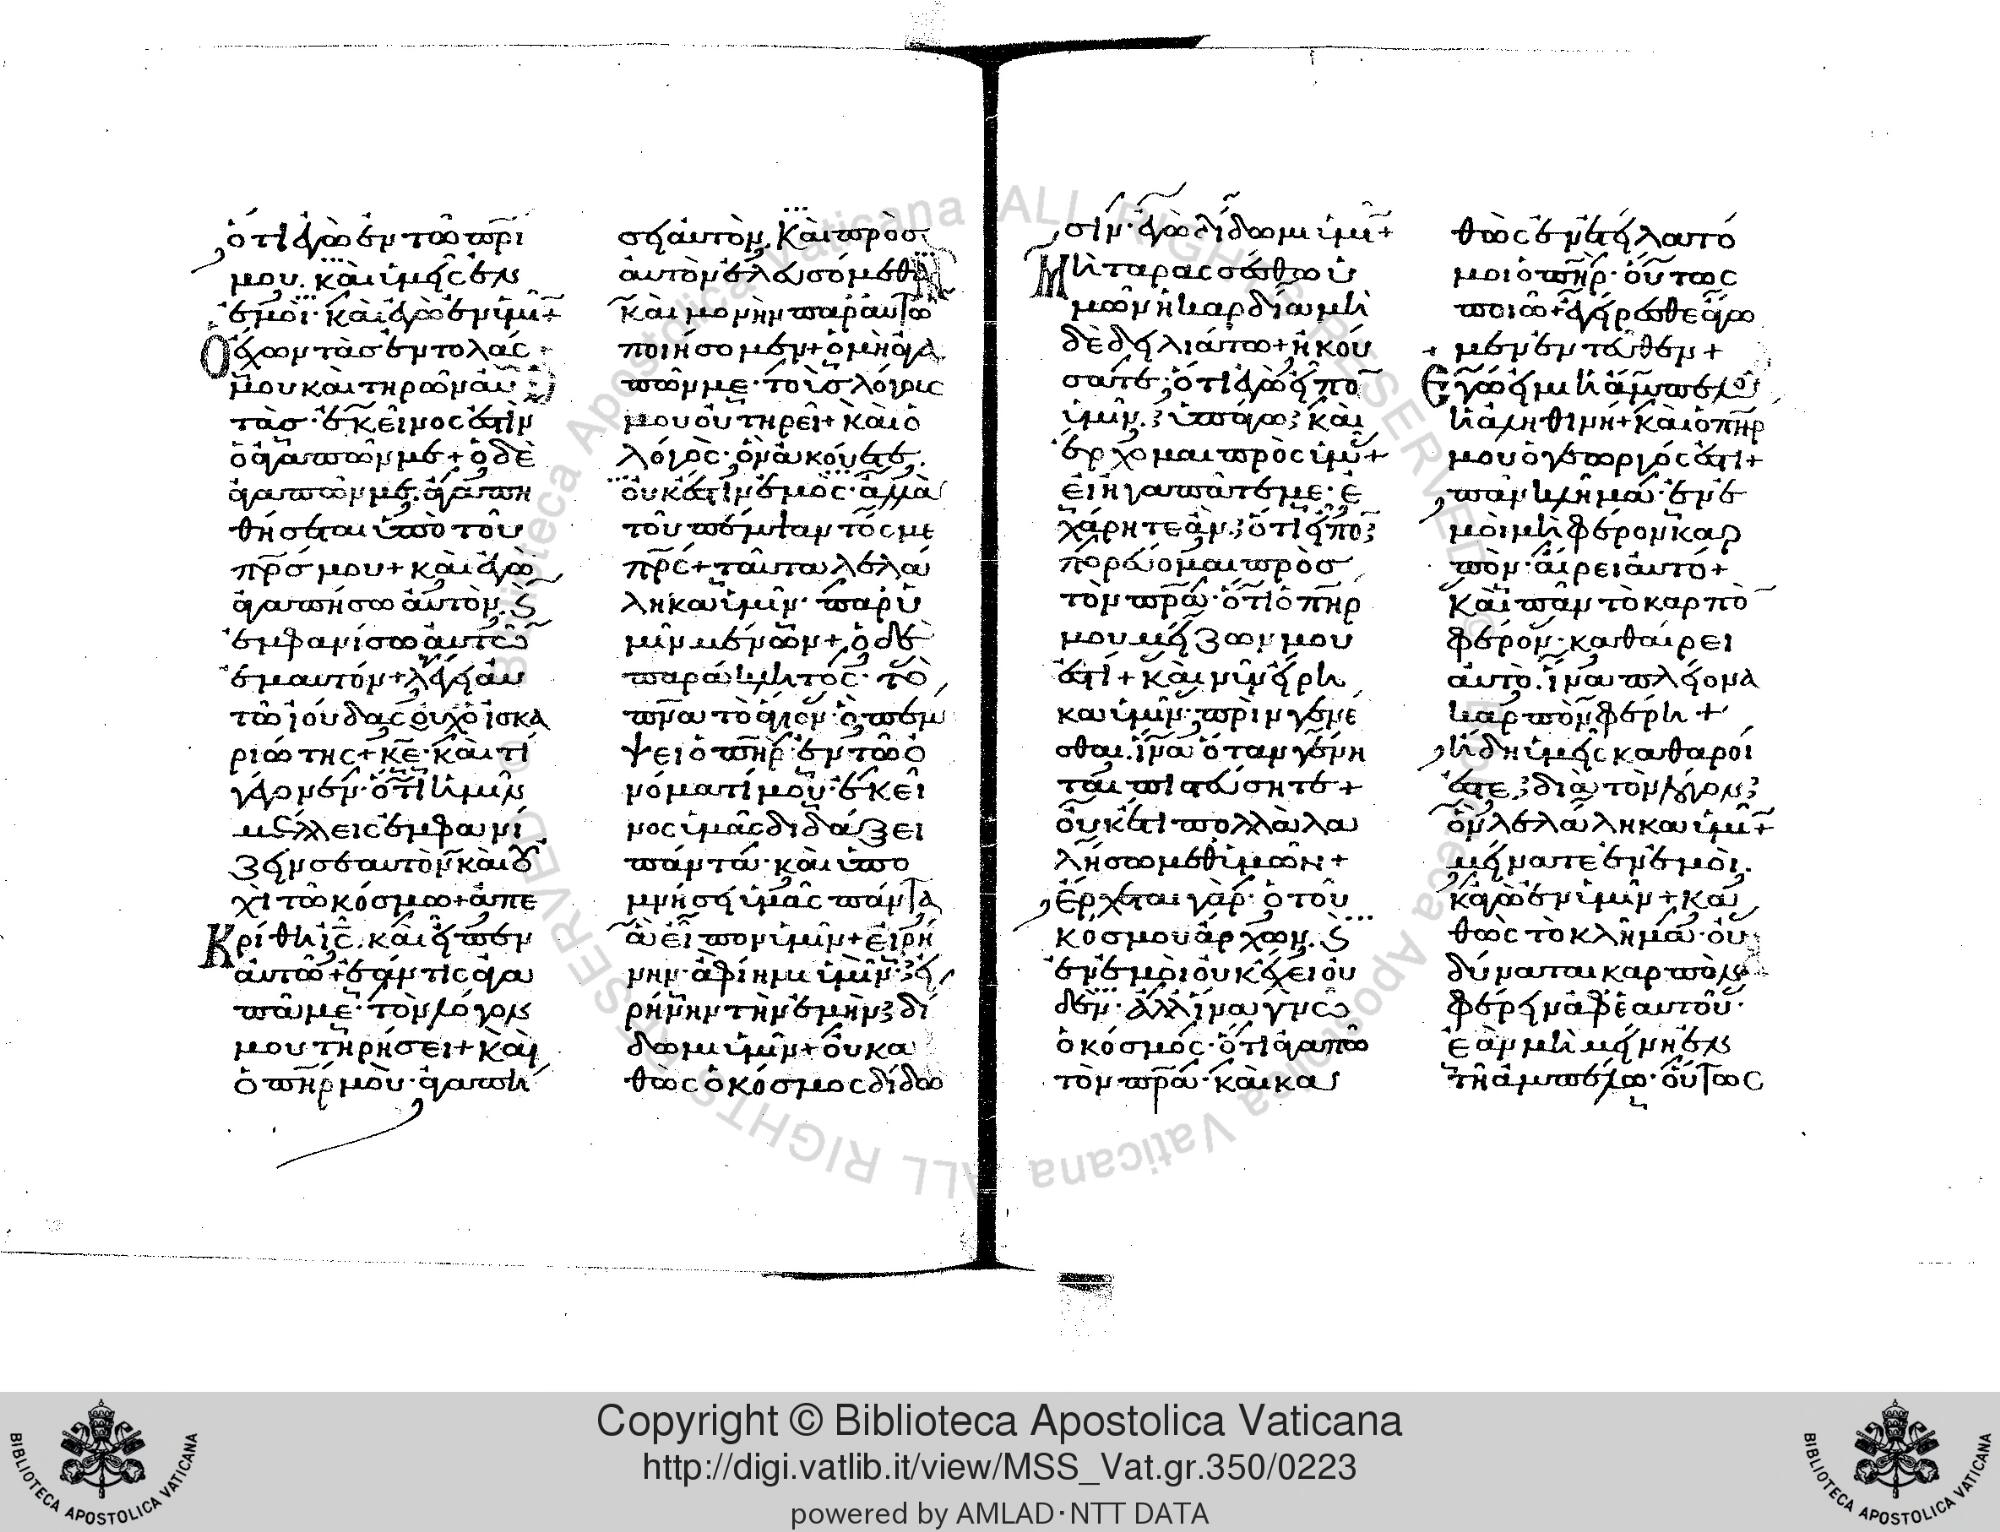 ὅτι ἐγὼ ἐν τῶ πρι
μου. καὶ ὑμεῖς ἐν
ἐμοὶ· καὶ ἐγὼ ἐν ὑμῖ+
Ὁ ἔχων τὰσ ἐντολάς
μου καὶ τηρῶν αὐ
τὰσ· ἐκεῖνος ἐστὶν
ὁ ἀγαπῶν με+ ὁ δὲ
ἀγαπῶν με. ἀγαπη
θήσεται ὑπὸ τοῦ
πρσ μου+ καὶ ἐγὼ
ἀγαπήσω αὐτὸν. ϛ
ἐμφανίσω αὐτῶ
ἐμαυτόν+ λέγει αὐ
τῶ ἰούδας οὐχ ὁ ἰσκα
ριώτης+ κε· καὶ τί
γέγονεν· ὅτι ἡμῖν
μέλλεις ἐμφανί
ζειν σεαυτὸν καὶ οὐ
χὶ τῶ κόσμω+ ἀπε
Κρίθη ις. καὶ εἶπεν
αὐτῶ+ ἐάν τις ἀγα
πᾶ με· τὸν λόγον
μου τηρήσει+ καὶ
ὁ πηρ μοὺ· ἀγαπή
σει αὐτὸν. Καὶ πρὸσ
αὐτὸν ἐλευσόμεθα
καὶ μονὴν παρ' αὐτῶ
ποιήσομεν+ ὁ μὴ ἀγα
πῶν με· τοὺς λόγους
μου οὐ τηρεῖ+ καὶ ὁ
λόγος· ὃν ἀκούετε.
οὐκ ἔστιν ἐμὸς· ἀλλὰ
τοῦ πέμψαντός με
πρς+ ταῦτα λελά
ληκα ὑμῖν· παρ' ὑ
μῖν μένων+ ὁ δὲ
παράκλητος· τὸ
πνα τὸ ἅγιον· ὃ πέμ
ψει ὁ πηρ ἐν τῶ ὀ
νόματί μου· ἐκεῖ
νος ὑμᾶς διδάξει
πάντα· καὶ ὑπο
μνήσει ὑμᾶς πάντα
ἃ εἶπον ὑμῖν+ εἰρή
νην· ἀφίημι ὑμῖν· εἰ
ρήνην τὴν ἐμὴν δί
δωμι ὑμῖν+ οὐ κα
θὼς ὁ κόσμος δίδω
σιν· ἐγὼ δίδωμι ὑμῖ+
Μὴ ταρασσέσθω ὑ
μῶν ἡ καρδία μὴ
δὲ δειλιάτω+ ἠκού
σατε· ὅτι ἐγὼ εἶπο
ὑμῖν· ὑπάγω καὶ
ἔρχομαι πρὸς ὑμᾶ+
εἰ ἠγαπᾶτέ με· ἐ
χάρητε ἂν· ὅτι εἶπο
πορεύομαι πρὸσ
τὸν πρα· ὅτι ὁ πηρ
μου μείζων μου
ἐστὶ+ καὶ νῦν εἴρη
κα ὑμῖν· πρὶν γενέ
σθαι. ἵνα ὅταν γένη
ται πιστεύσητε+
οὐκέτι πολλὰ λα
λήσω μεθ' ὑμῶν+
ἔρχεται γὰρ· ὁ τοῦ
κόσμου ἄρχων. ϛ
ἐν ἐμοὶ οὐκ ἔχει οὐ
δὲν· ἀλλ' ἵνα γνῶ
ὁ κόσμος· ὅτι ἀγαπῶ
τὸν πρα· καὶ κα
θὼς ἐνετείλατό
μοι ὁ πηρ· οὕτως
ποιῶ+ ἐγείρεσθε ἄγω
μεν ἐντεῦθεν+
Ἐγώ εἰμι ἡ ἄμπελος
ἡ ἀληθινή+ καὶ ὁ πηρ
μου ὁ γεωργός ἐστι+
πᾶν κλῆμα· ἐν ἐ
μοὶ μὴ φέρον καρ
πὸν· αἴρει αὐτό+
καὶ πᾶν τὸ καρπὸ
φέρον· καθαίρει
αὐτὸ. ἵνα πλείονα
καρπὸν φέρη+
ἤδη ὑμεῖς καθαροί
ἐστε· διὰ τὸν λόγον
ὃν λελάληκα ὑμῖ+
μείνατε ἐν ἐμοὶ.
κἀγὼ ἐν ὑμῖν+ κα
θὼς τὸ κλῆμα· οὐ
δύναται καρπὸν
φέρειν ἀφ' ἑαυτοῦ·
ἐὰν μὴ μείνη ἐν
τῆ ἀμπέλω· οὕτως
Copyright © Biblioteca Apostolica Vaticana
http://digi.vatlib.it/view/MSS_Vat.gr.350/0223
powered by AMLAD·NTT DATA
BIBLIOTECA APOSTOLICA VATICANA
BIBLIOTECA APOSTOLICA VATICANA